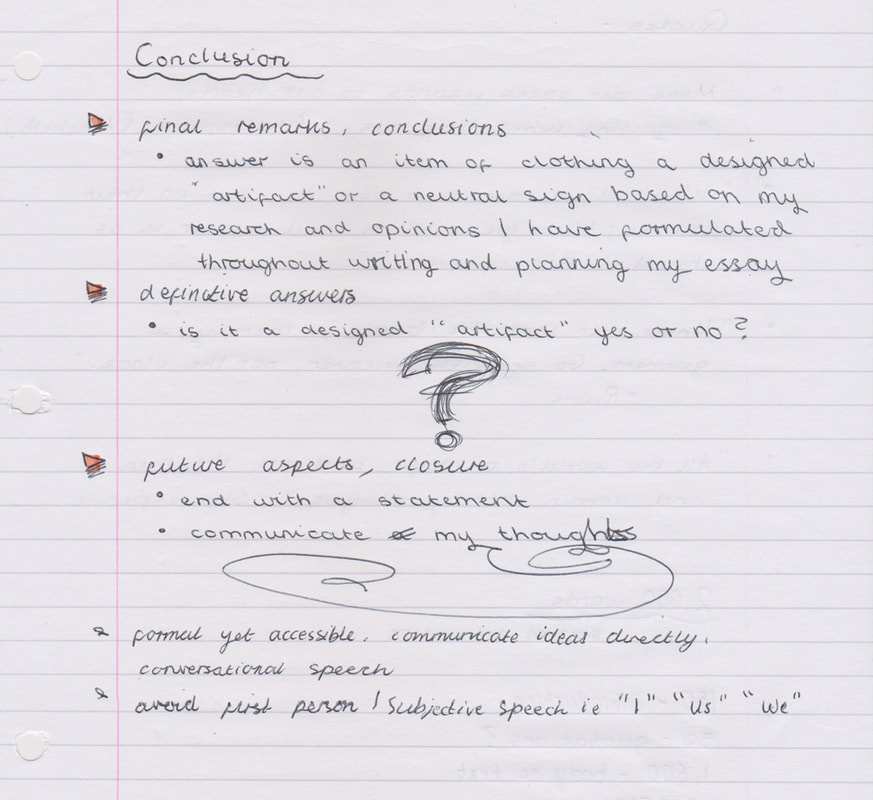 Conclusion
final remarks, conclusions
• answer is an item of clothing a designed
"artifact" or a neutral sign based on my
research and opinions I have formulated
throughout writing and planning my essay
definitive answers
• is it a designed "artifact" yes or no?
?
future aspects, closure
• end with a statement
• communicate my thoughts
formal yet accessible. communicate ideas directly.
conversational speech
avoid first person / subjective speech ie "I" "us" "we"